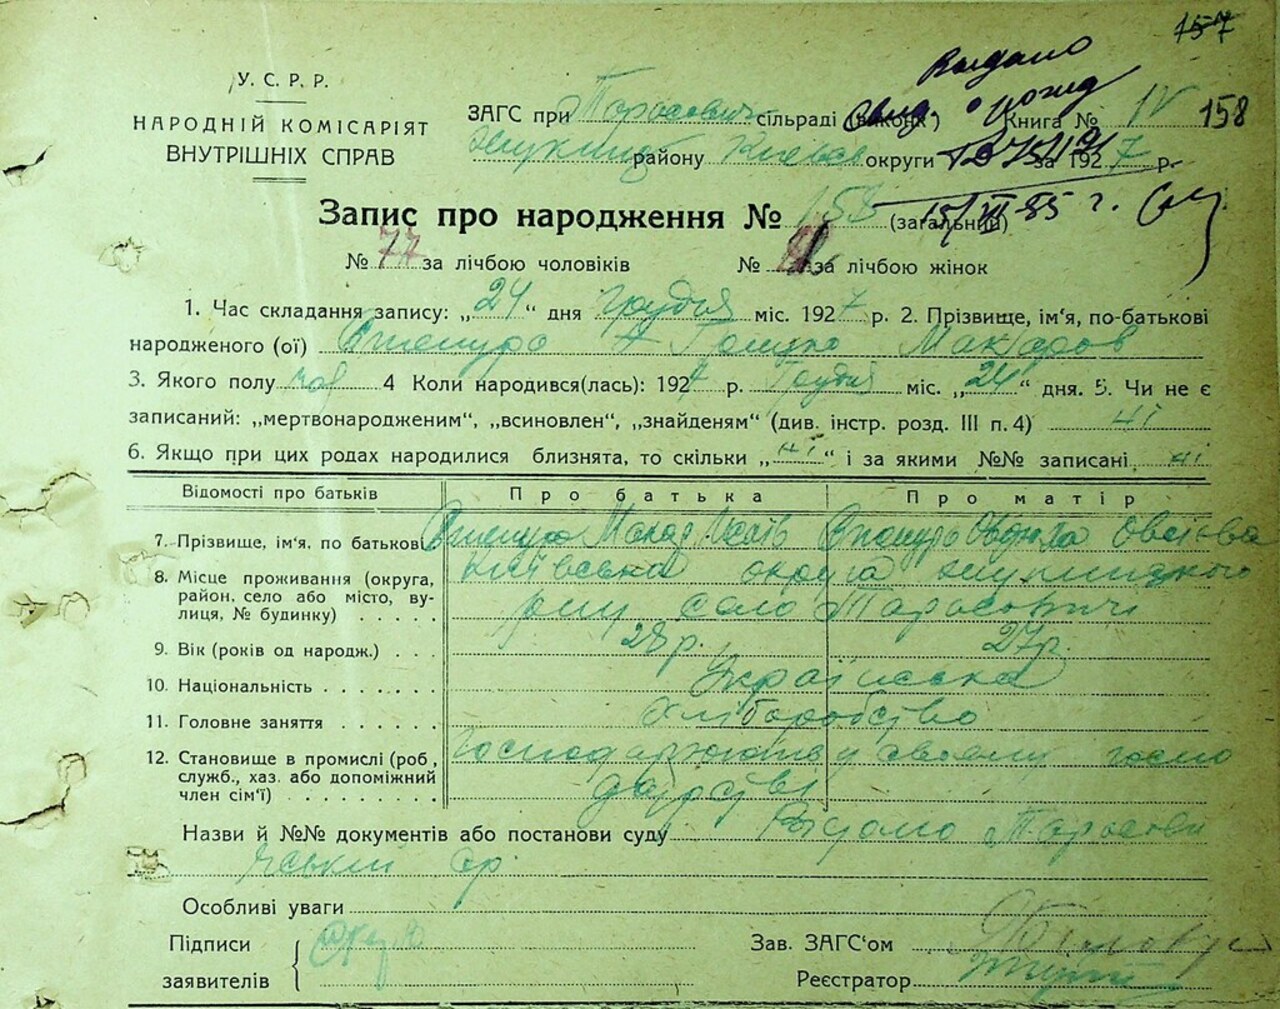 157
У. С. Р. Р.
НАРОДНІЙ КОМІСАРІЯТ
ВНУТРІШНІХ СПРАВ
Выдано
ЗАГС при Тарасович сільраді (виконк) Книга № IV 158
району Київс округи за 1927 р.
15/VI-85 г.
Запис про народження № 158 (загальний)
№ 77 за лічбою чоловіків № за лічбою жінок
1. Час складання запису: „24“ дня грудня міс. 1927 р. 2. Прізвище, ім‘я, по-батькові
народженого (ої) Макаров
3. Якого полу чол 4 Коли народився(лась): 1927 р. Грудня міс. „24“ дня. 5. Чи не є
записаний: „мертвонародженим“, „всиновлен“, „знайденям“ (див. інстр. розд. III п. 4) ні
6. Якщо при цих родах народилися близнята, то скільки „ні“ і за якими №№ записані ні
Відомості про батьків Про батька Про матір
7. Прізвище, ім‘я, по батькові Макар
8. Місце проживання (округа, Київська округа
район, село або місто, ву- село Тарасовичі
лиця, № будинку)
9. Вік (років од народж.) 28 р. 27 р.
10. Національність Українська
11. Головне заняття Хліборобство
12. Становище в промислі (роб, господарюють у своєму госпо
служб., хаз. або допоміжний дарстві
член сім‘ї)
Назви й №№ документів або постанови суду Видано Тарасови
чський ср
Особливі уваги
Підписи Зав. ЗАГС‘ом
заявителів Реєстратор